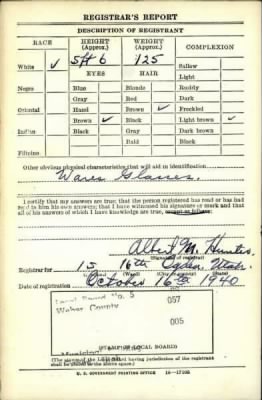 REGISTRAR'S REPORT
DESCRIPTION OF REGISTRANT
RACE HEIGHT (Approx.) WEIGHT (Approx.) COMPLEXION
White ✓ 5ft 6 125 Sallow
EYES HAIR Light
Negro Blue Blonde Ruddy
Gray Red Dark
Oriental Hazel Brown ✓ Freckled
Brown ✓ Black Light brown ✓
Indian Black Gray Dark brown
Bald Black
Filipino
Other obvious physical characteristics that will aid in identification
Wares Glasses.
I certify that my answers are true; that the person registered has read or has had
read to him his own answers; that I have witnessed his signature or mark and that
all of his answers of which I have knowledge are true, except as follows:
Albert M. Hunter
(Signature of registrar)
Registrar for 15 16th Ogden, Utah
Date of registration October 16th 1940
Local Board No. 5
Weber County
057
005
(STAMP OF LOCAL BOARD)
U. S. GOVERNMENT PRINTING OFFICE 16-17105